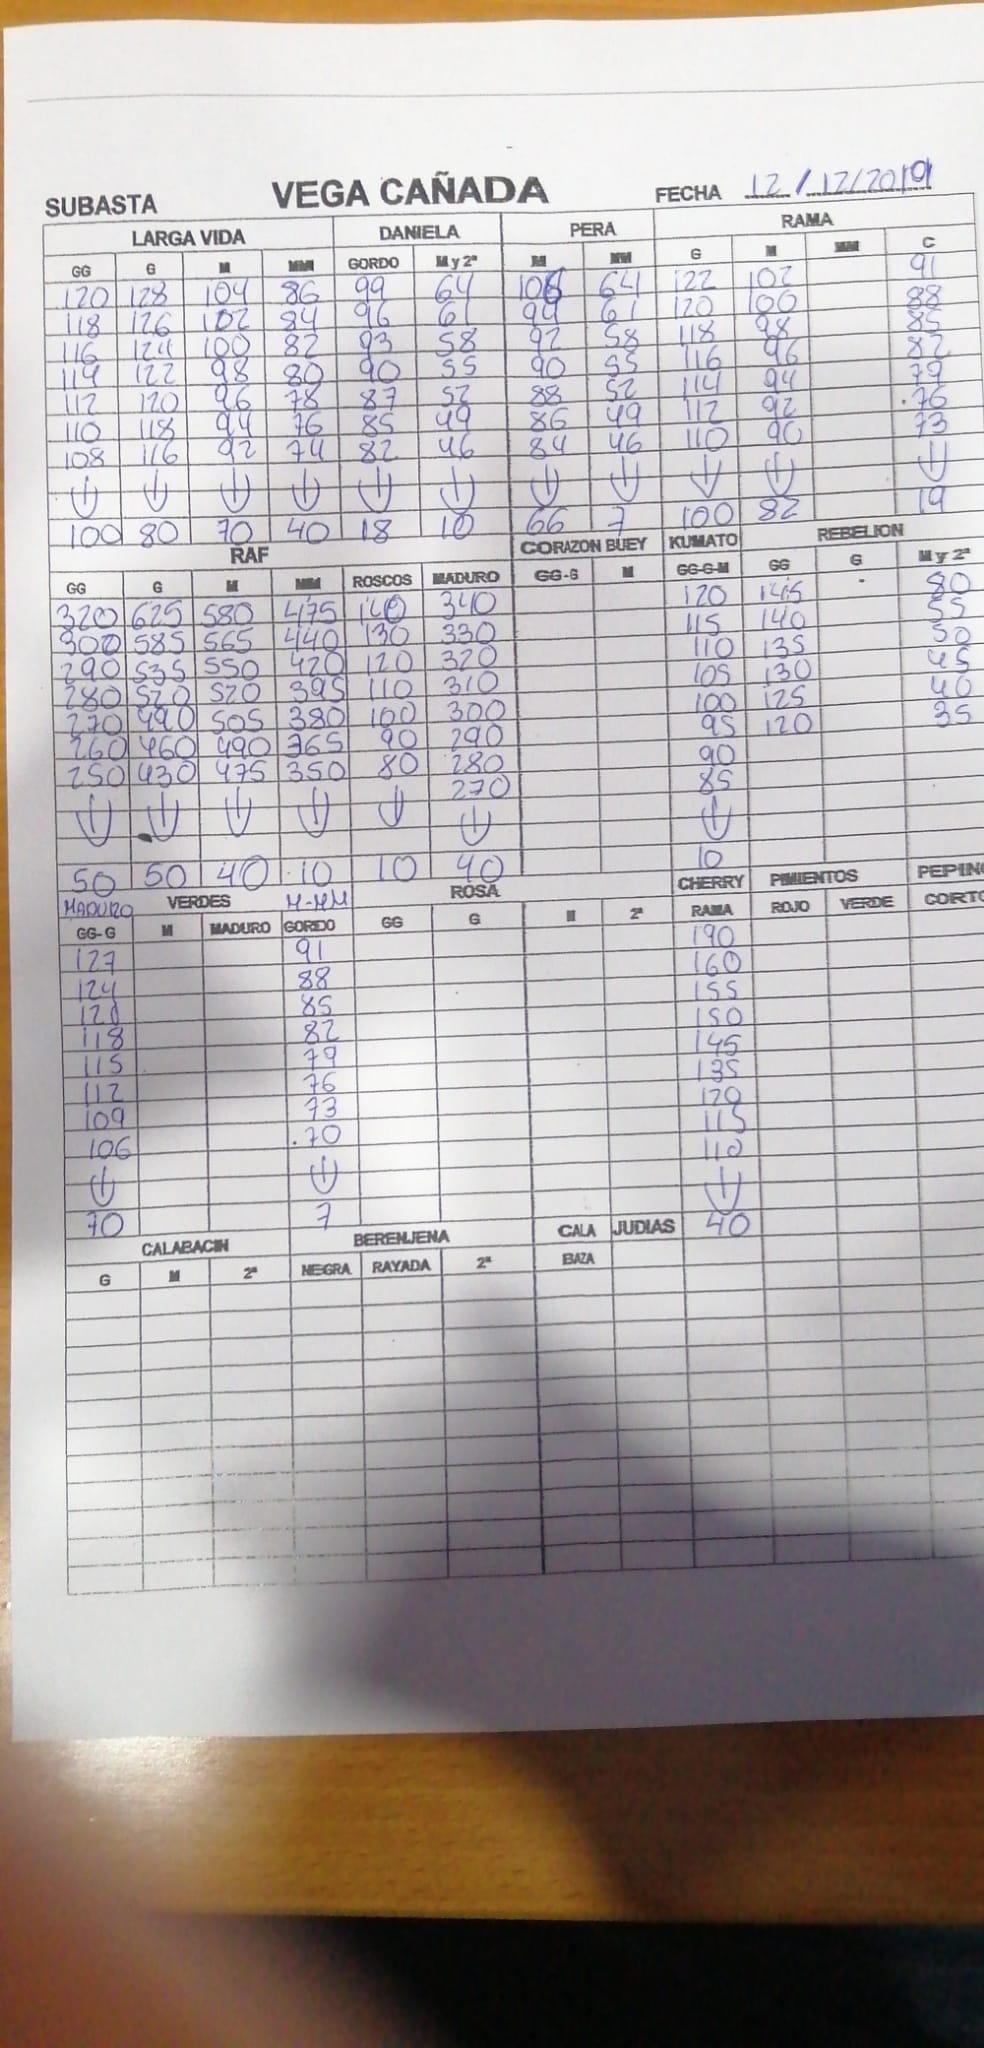 SUBASTA VEGA CAÑADA FECHA 12/12/2019
LARGA VIDA DANIELA PERA RAMA
GG G M MM GORDO M y 2ª M MM G M MM C
120 128 104 86 99 64 64 122 102 91
118 126 102 84 96 61 94 61 120 100 88
116 124 100 82 93 58 92 58 118 98 85
114 122 98 80 90 55 90 55 116 96 82
112 120 96 78 87 52 88 52 114 94 79
110 118 94 76 85 49 86 49 112 92 .76
108 116 92 74 82 46 84 46 110 90 73
↓ ↓ ↓ ↓ ↓ ↓ ↓ ↓ ↓ ↓ ↓
100 80 70 40 18 10 66 7 100 82 19
RAF CORAZON BUEY KUMATO REBELION
GG G M MM ROSCOS MADURO GG-G M GG-G-M GG G M y 2ª
320 625 580 475 140 340 120 145 80
300 585 565 440 130 330 115 140 55
290 535 550 420 120 320 110 135 50
280 520 520 395 110 310 105 130 45
270 490 505 380 100 300 100 125 40
260 460 490 365 90 290 95 120 35
250 430 475 350 80 280 90
270 85
↓ ↓ ↓ ↓ ↓ ↓ ↓
50 50 40 10 10 40 10
MADURO VERDES M-MM ROSA CHERRY PIMIENTOS PEPINO
GG-G M MADURO GORDO GG G M 2ª RAMA ROJO VERDE CORTO
127 91 190
124 88 160
85 155
118 82 150
115 79 145
112 76 135
109 73 120
106 .70 115
110
↓ ↓ ↓
70 7 40
CALABACIN BERENJENA CALA JUDIAS
G M 2ª NEGRA RAYADA 2ª BAZA